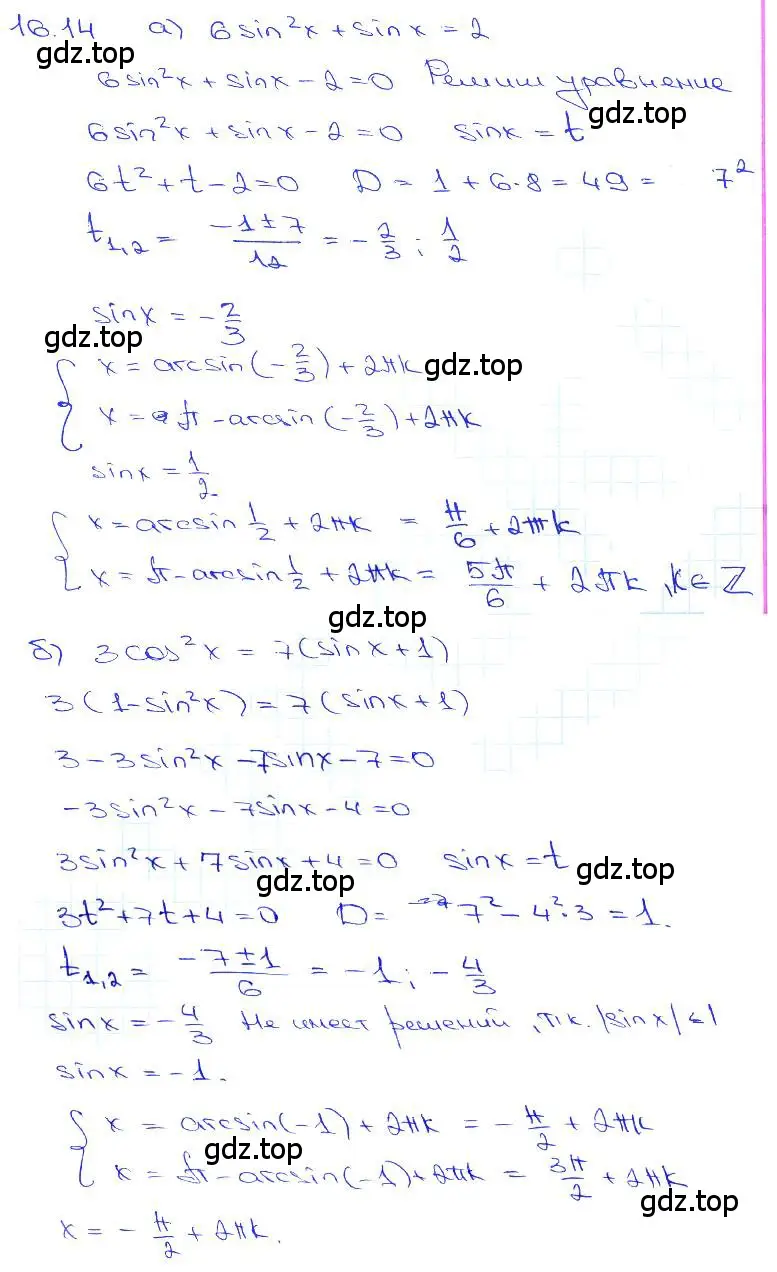 16.14 а) 6sin²x + sinx = 2
gdz.top
6sin²x + sinx - 2 = 0 Решим уравнение
6sin²x + sinx - 2 = 0 sinx = t
gdz.top
6t² + t - 2 = 0 D = 1 + 6·8 = 49 = 7²
t₁,₂ = (-1 ± 7)/12 = -2/3 ; 1/2
sinx = -2/3
gdz.top
{ x = arcsin(-2/3) + 2πk
gdz.top
x = π - arcsin(-2/3) + 2πk
sinx = 1/2
{ x = arcsin 1/2 + 2πk = π/6 + 2πk
x = π - arcsin 1/2 + 2πk = 5π/6 + 2πk, k ∈ Z
gdz.top
б) 3cos²x = 7(sinx + 1)
3(1 - sin²x) = 7(sinx + 1)
3 - 3sin²x - 7sinx - 7 = 0
-3sin²x - 7sinx - 4 = 0
3sin²x + 7sinx + 4 = 0 sinx = t
gdz.top
gdz.top
3t² + 7t + 4 = 0 D = 7² - 4²·3 = 1.
t₁,₂ = (-7 ± 1)/6 = -1; -4/3
sinx = -4/3 Не имеет решений, т.к. |sinx| ≤ 1
sinx = -1.
{ x = arcsin(-1) + 2πk = -π/2 + 2πk
gdz.top
x = π - arcsin(-1) + 2πk = 3π/2 + 2πk
gdz.top
x = -π/2 + 2πk.